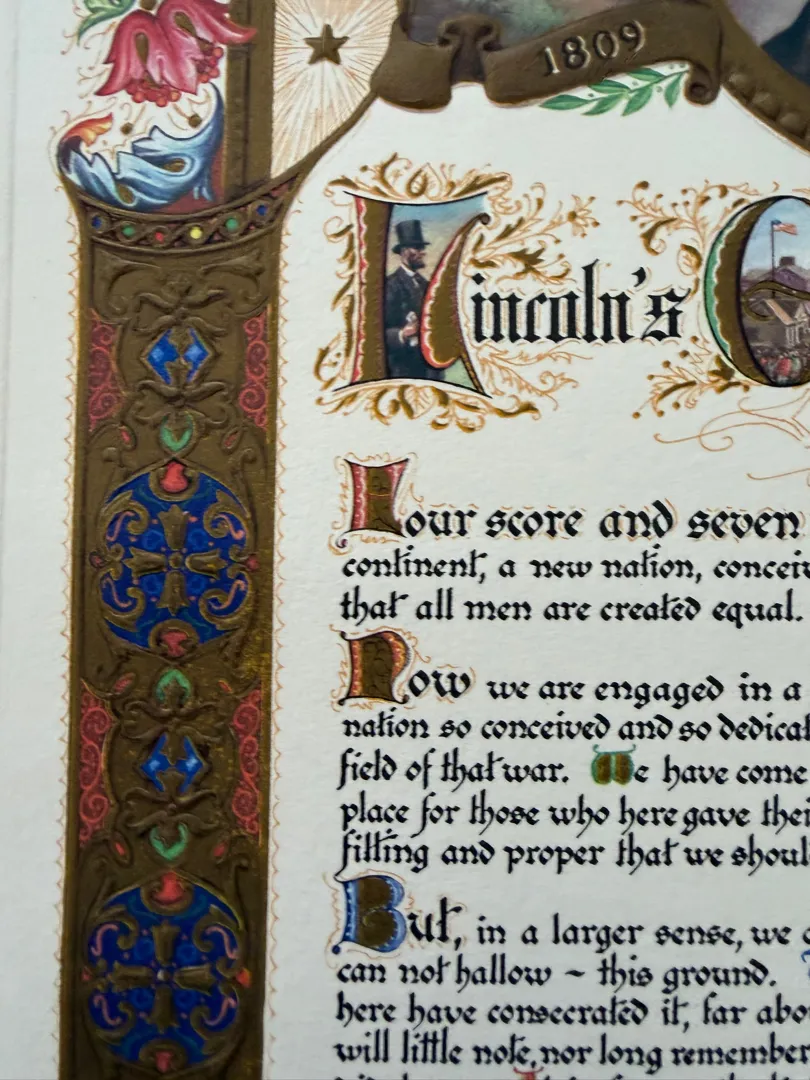 1809
Lincoln's G
Four score and seven
continent, a new nation, concei
that all men are created equal.
Now we are engaged in a
nation so conceived and so dedica
field of that war. We have come
place for those who here gave thei
fitting and proper that we shoul
But, in a larger sense, we
can not hallow ~ this ground.
here have consecrated it, far abo
will little note, nor long remember